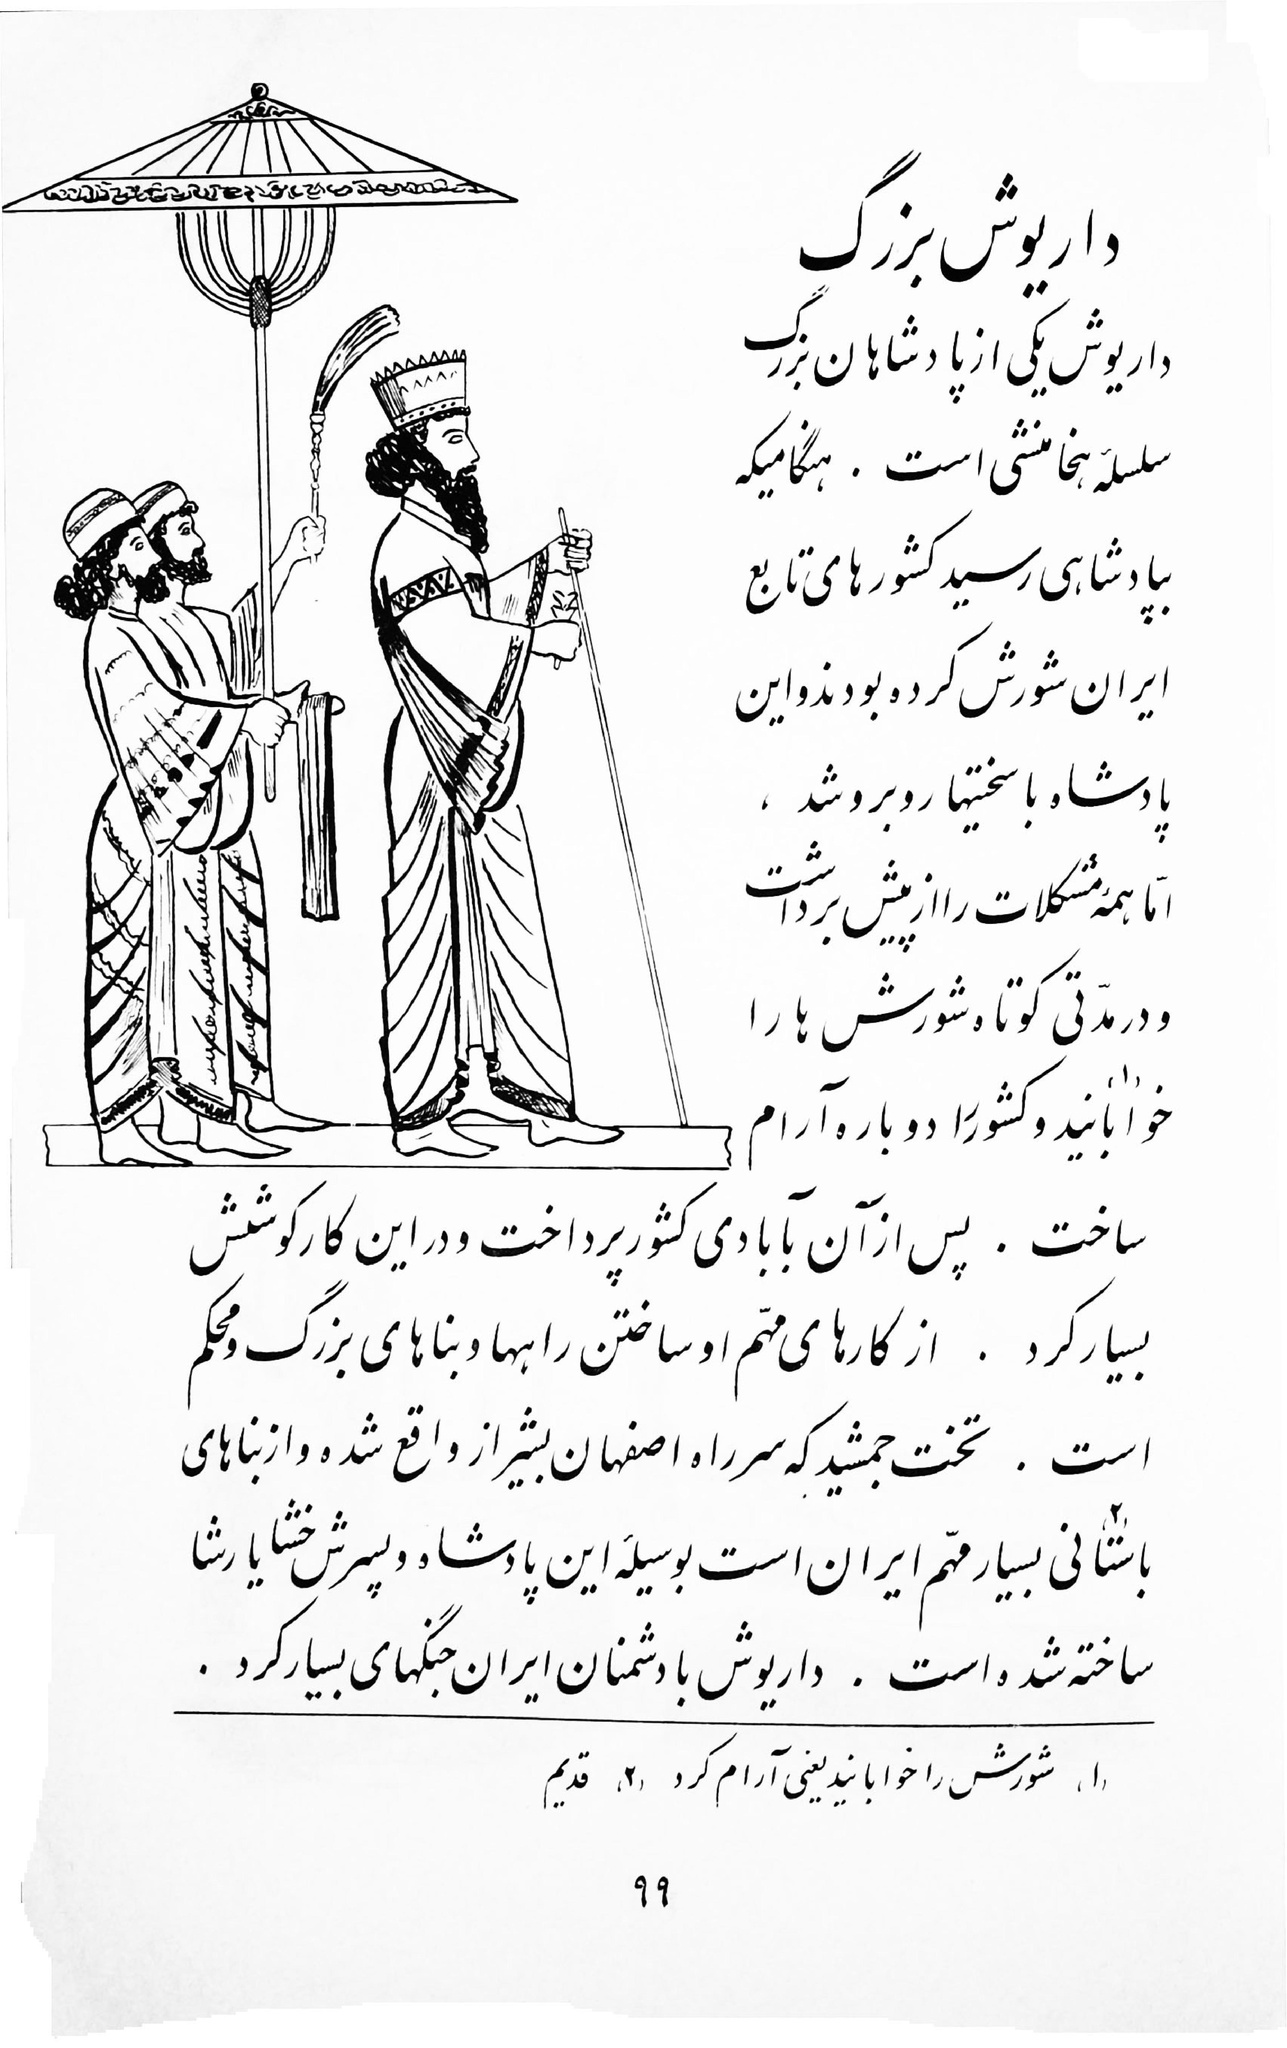 داریوش بزرگ
داریوش یکی از پادشاهان بزرگ
سلسلهٔ هخامنشی است . هنگامیکه
بپادشاهی رسید کشورهای تابع
ایران شورش کرده بودند و این
پادشاه با سختیها روبرو شد ،
امّا همهٔ مشکلات را از پیش برداشت
و در مدّتی کوتاه شورش ها را
خوابانید(۱) و کشور را دوباره آرام
ساخت . پس از آن بآبادی کشور پرداخت و در این کار کوشش
بسیار کرد . از کارهای مهّم او ساختن راهها و بناهای بزرگ و محکم
است . تخت جمشید که سر راه اصفهان بشیراز واقع شده و از بناهای
باستانی(۲) بسیار مهّم ایران است بوسیلهٔ این پادشاه و پسرش خشایارشا
ساخته شده است . داریوش با دشمنان ایران جنگهای بسیار کرد .
(۱) شورش را خوابانید یعنی آرام کرد (۲) قدیم
۹۹